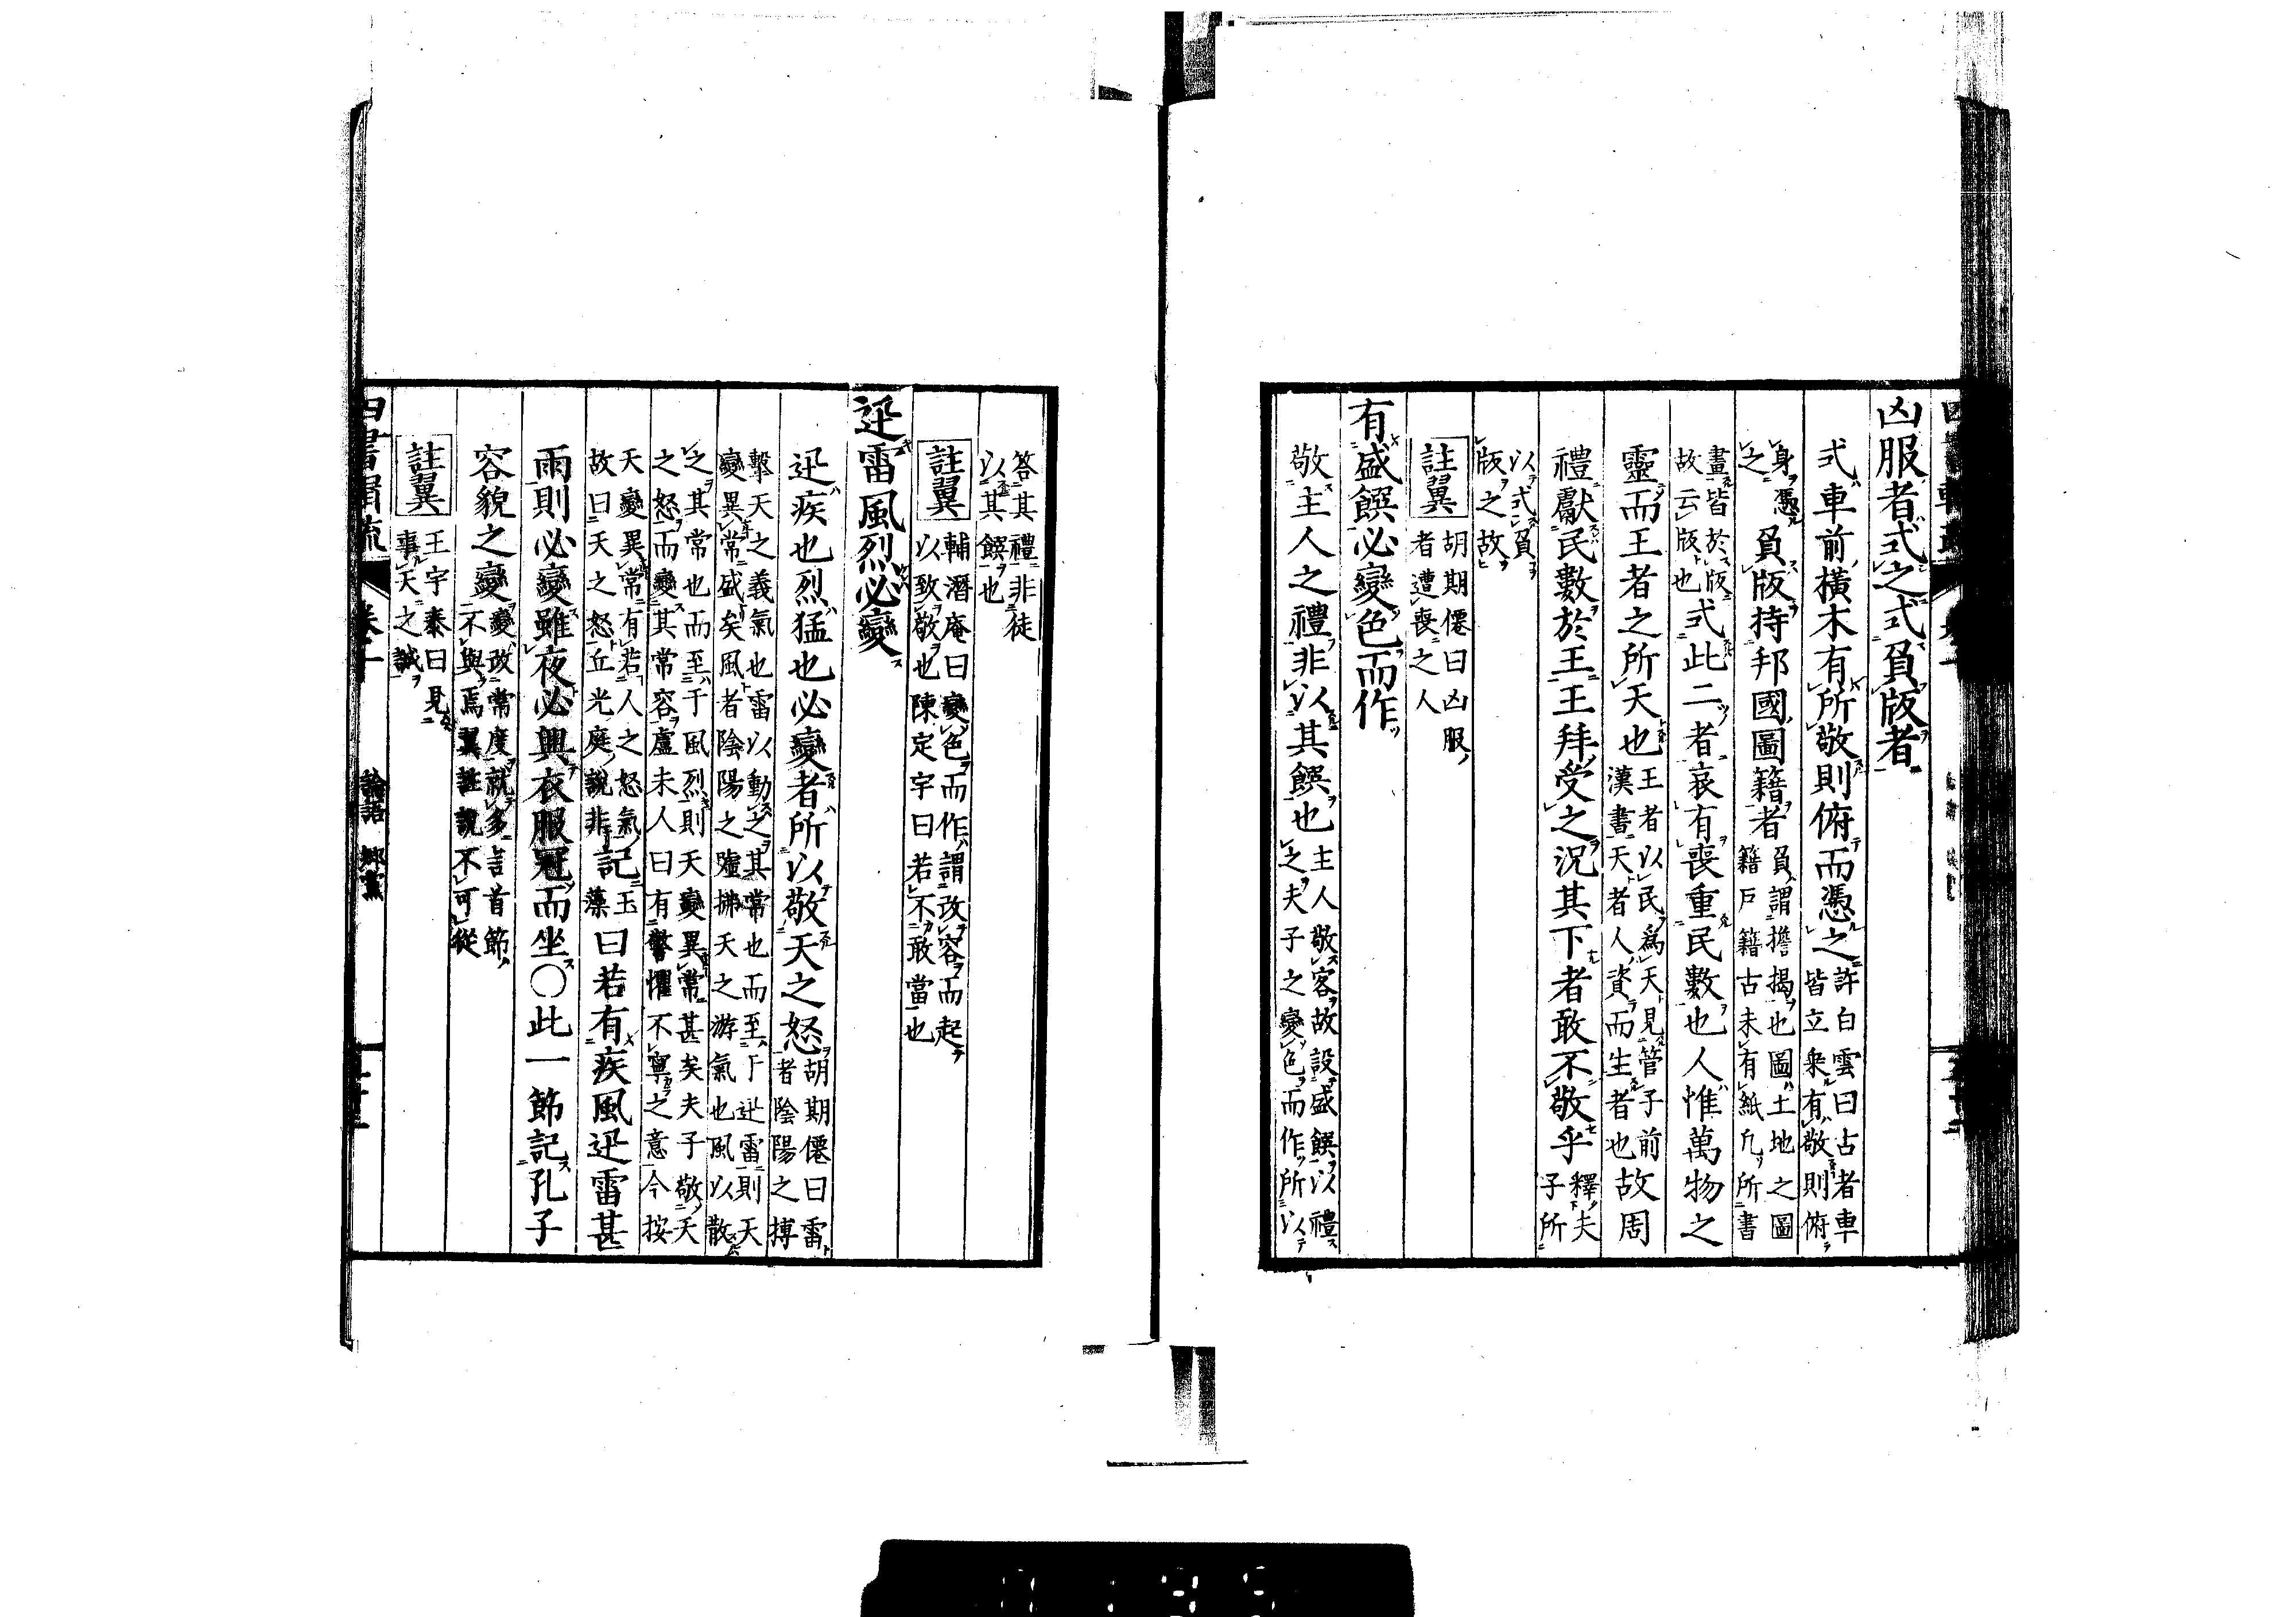 凶服者式之式負版者
式車前橫木有所敬則俯而憑之許白雲曰古者車
皆立乘有敬則俯
身憑
之負版持邦國圖籍者負謂擔揭也圖土地之圖
籍戶籍古未有紙凡所書
畫皆於版
故云版也式此二者哀有喪重民數也人惟萬物之
靈而王者之所天也王者以民爲天見管子前
漢書天者人資而生者也故周
禮獻民數於王王拜受之況其下者敢不敬乎釋夫
子所
以式負
版之故
註翼
胡期僊曰凶服
者遭喪之人
有盛饌必變色而作
敬主人之禮非以其饌也主人敬客故設盛饌以禮
之夫子之變色而作所以
答其禮非徒
以其饌也
註翼
輔潛庵曰變色而作謂改容而起
以致敬也陳定宇曰若不敢當也
迅雷風烈必變
迅疾也烈猛也必變者所以敬天之怒胡期僊曰雷
者陰陽之搏
擊天之義氣也雷以動之其常也而至于迅雷則天
變異常盛矣風者陰陽之噓拂天之游氣也風以散
之其常也而至于風烈則天變異常甚矣夫子敬天
之怒而變其常容盧未人曰有驚懼不寧之意今按
天變異常有若人之怒氣
故曰天之怒丘光庭說非記玉
藻曰若有疾風迅雷甚
雨則必變雖夜必興衣服冠而坐○此一節記孔子
容貌之變變改常度就多言首節
不與焉翼註說不可從
註翼
王宇泰曰見
事天之誠
卷十
論語 鄉黨